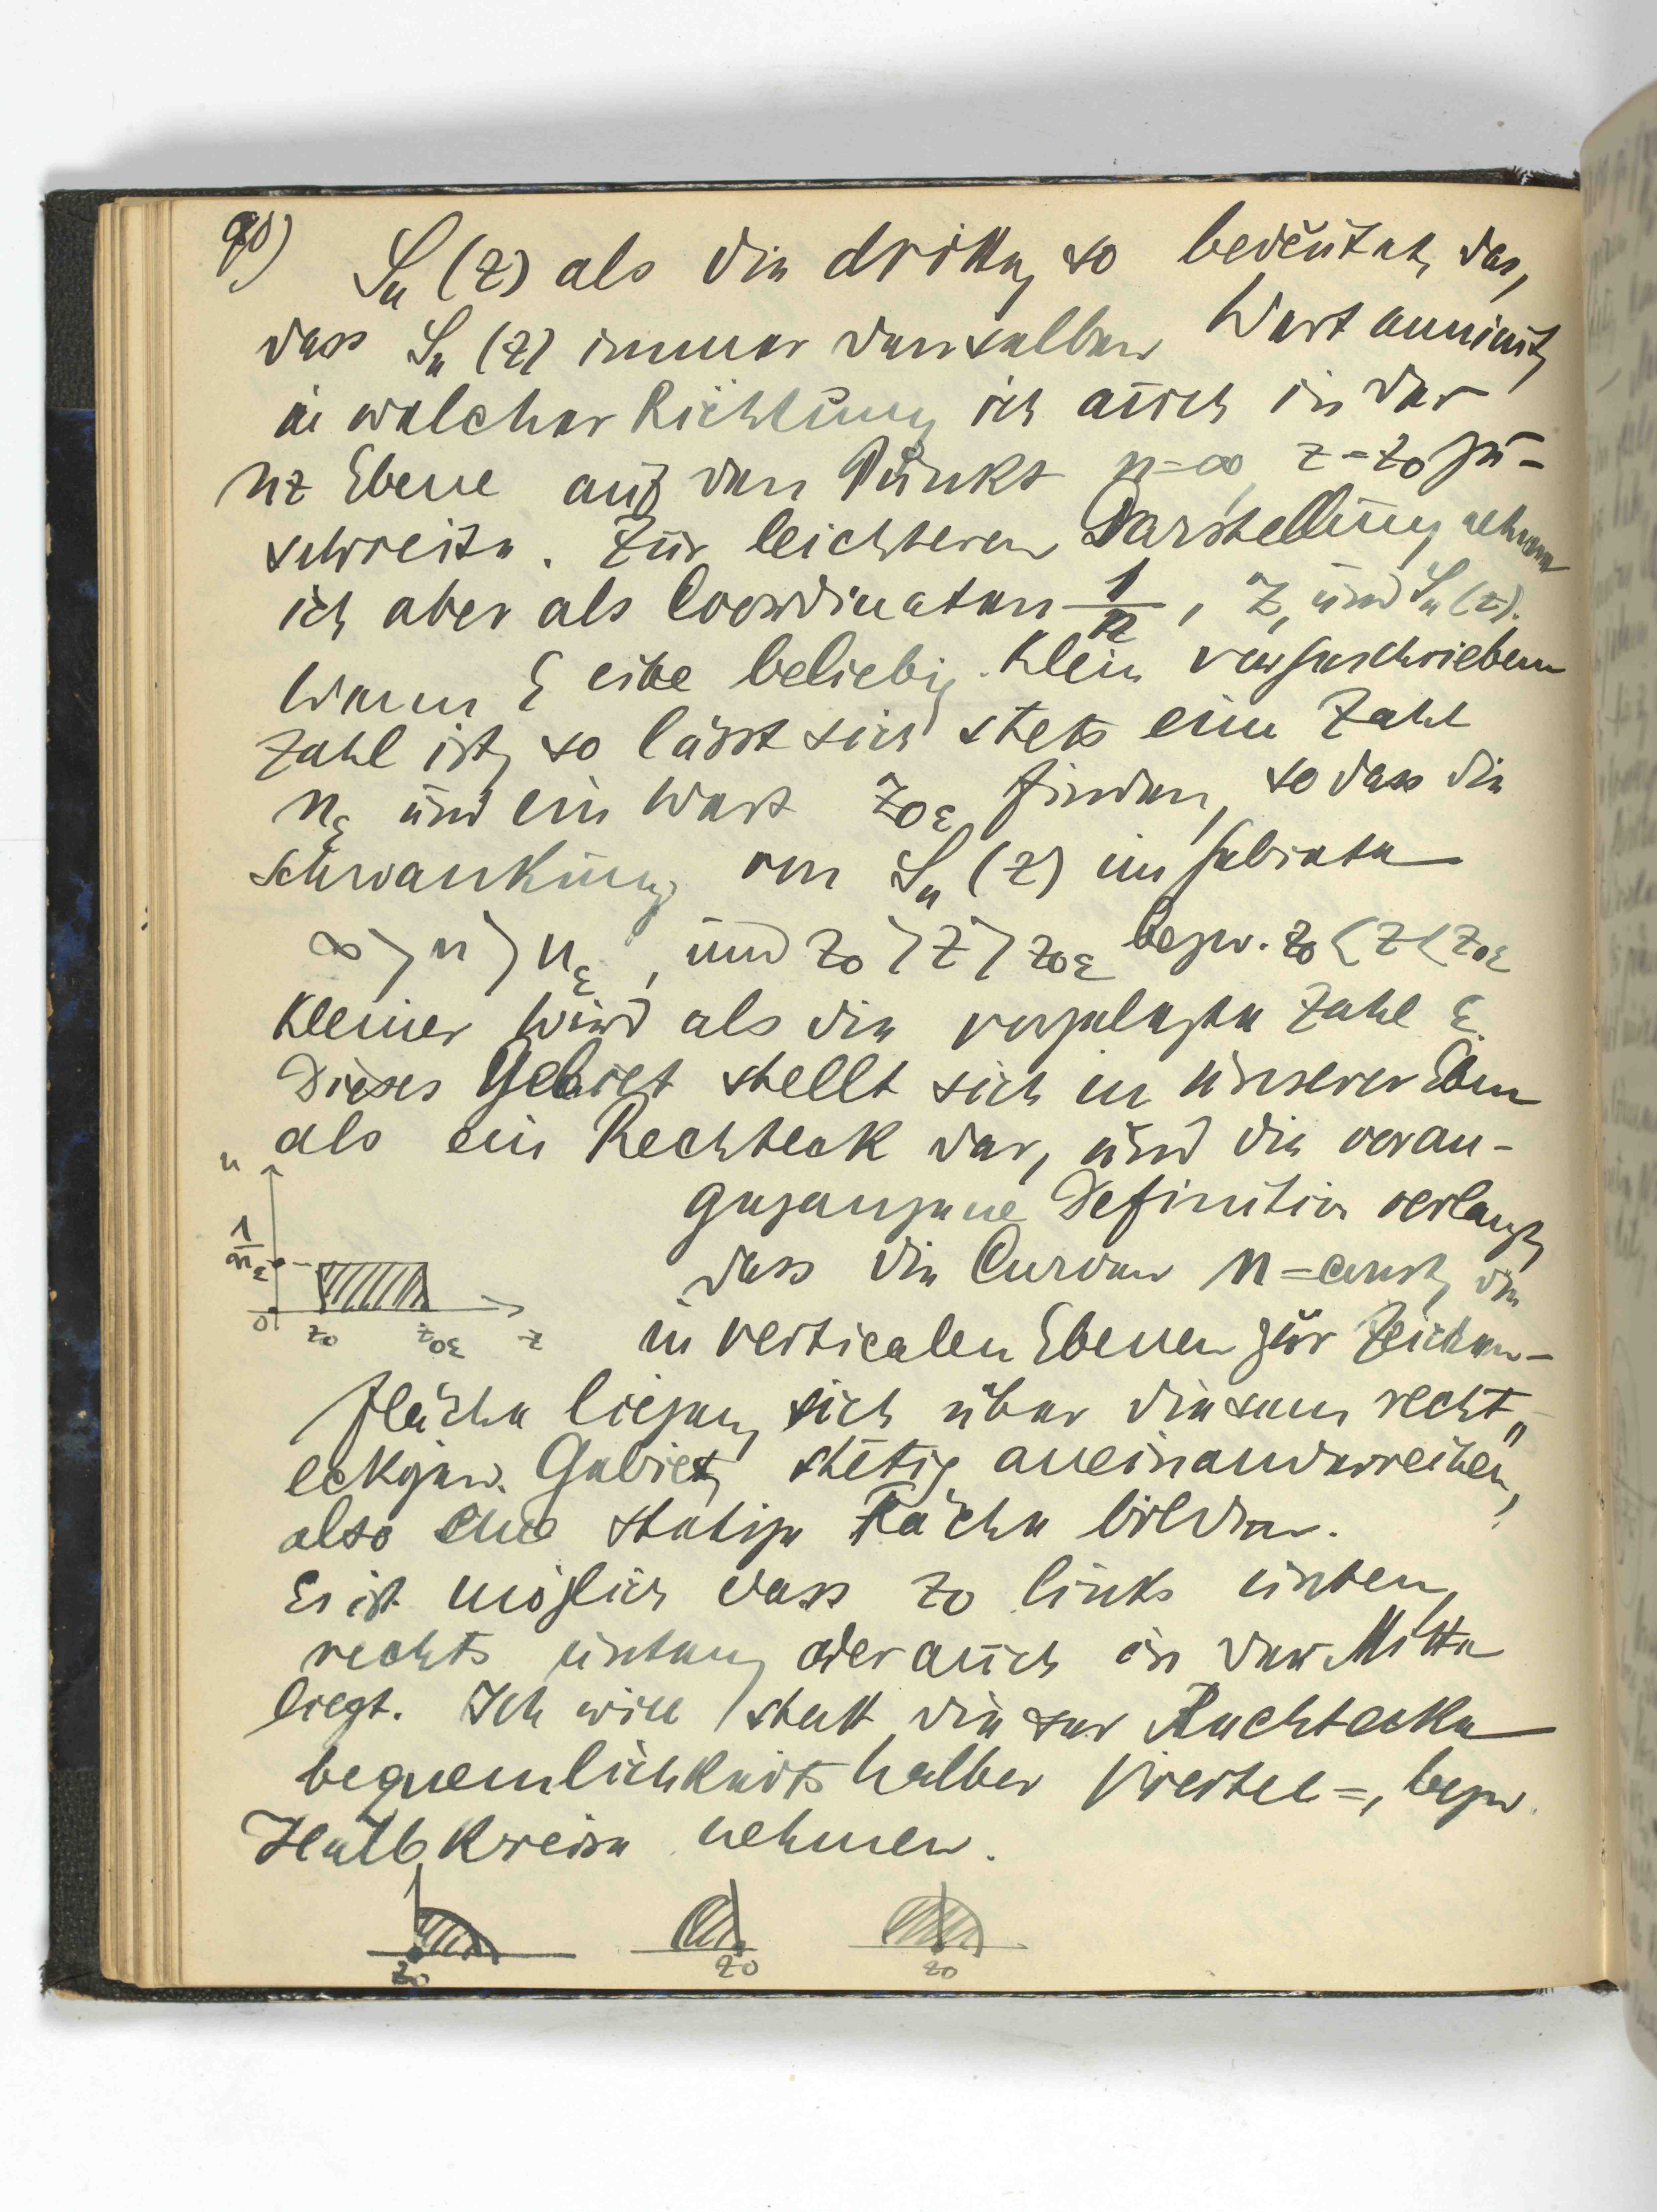 90)
Sn (z) als die dritte, so bedeutet das,
dass Sn (z) immer denselben Wert annimmt,
in welcher Richtung ich auch in der
nz Ebene auf den Punkt n=∞, z=z0 zu-
schreite. Zur leichteren Darstellung nehme
ich aber als Coordinaten 1/n, z, und Sn (z).
Wenn ε eine beliebig klein vorgeschriebene
Zahl ist, so lässt sich stets eine Zahl
nε und ein Wert z0ε finden, so dass die
Schwankung von Sn (z) im Gebiete
∞ > n > nε, und z0 > z > z0ε bezw. z0 < z < z0ε
kleiner wird als die vorgelegte Zahl ε.
Dieses Gebiet stellt sich in unserer Ebene
als ein Rechteck dar, und die voran-
gegangene Definition verlangt,
dass die Curven n = const, die
in verticalen Ebenen zur Zeichen-
fläche liegen, sich über diesem recht„
eckigen Gebiet, stetig aneinanderreihen,
also eine stetige Fläche bilden.
n
1/nε
0 z0 z0ε z
Es ist möglich dass z0 links unten,
rechts unten, oder auch in der Mitte
liegt. Ich will statt dieser Rechtecke
bequemlichkeitshalber Viertel=, bezw.
Halbkreise nehmen.
z0 z0 z0